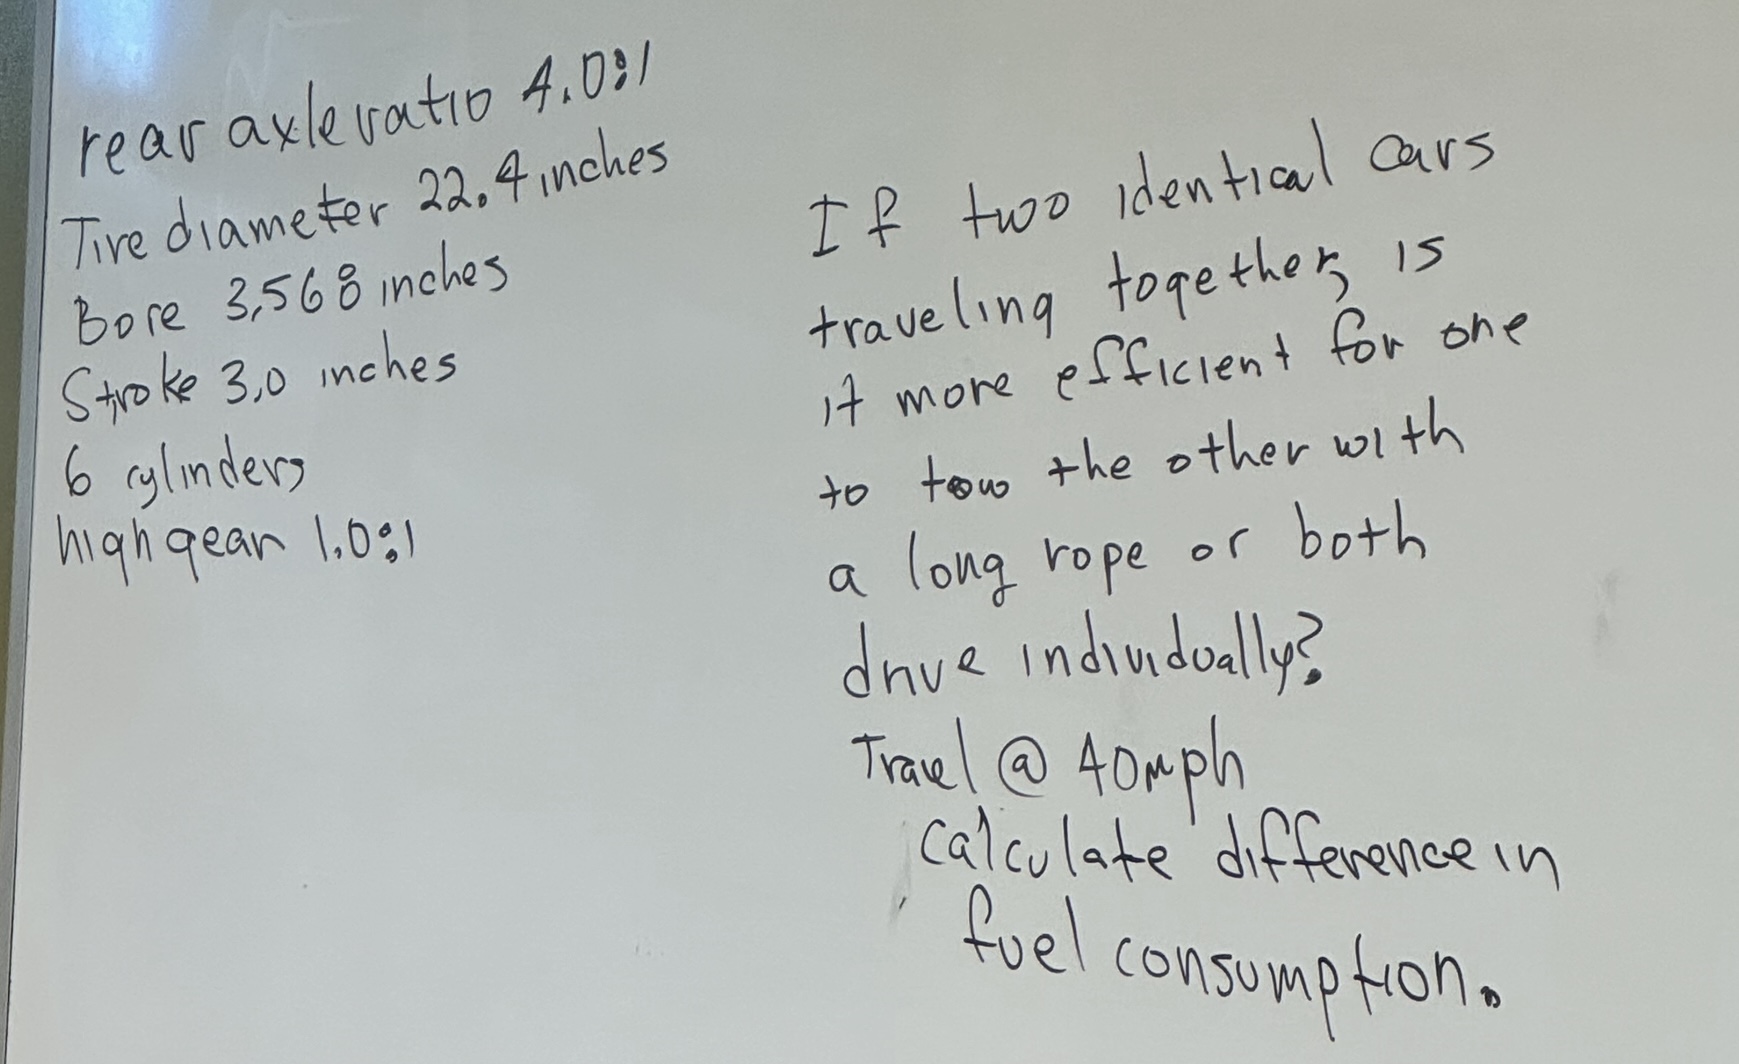 rear axle ratio 4.0:1
Tire diameter 22.4 inches
Bore 3.568 inches
Stroke 3.0 inches
6 cylinders
high gear 1.0:1
If two identical cars
traveling together, is
it more efficient for one
to tow the other with
a long rope or both
drive individually?
Travel @ 40mph
calculate difference in
fuel consumption.